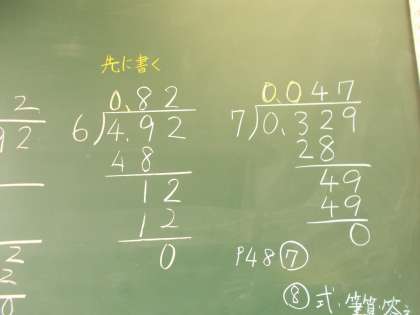 2
92
2
2
0
先に書く
0.82
6)4.92
48
12
12
0
0.047
7)0.329
28
49
49
0
P48⑦
⑧式・筆算・答え